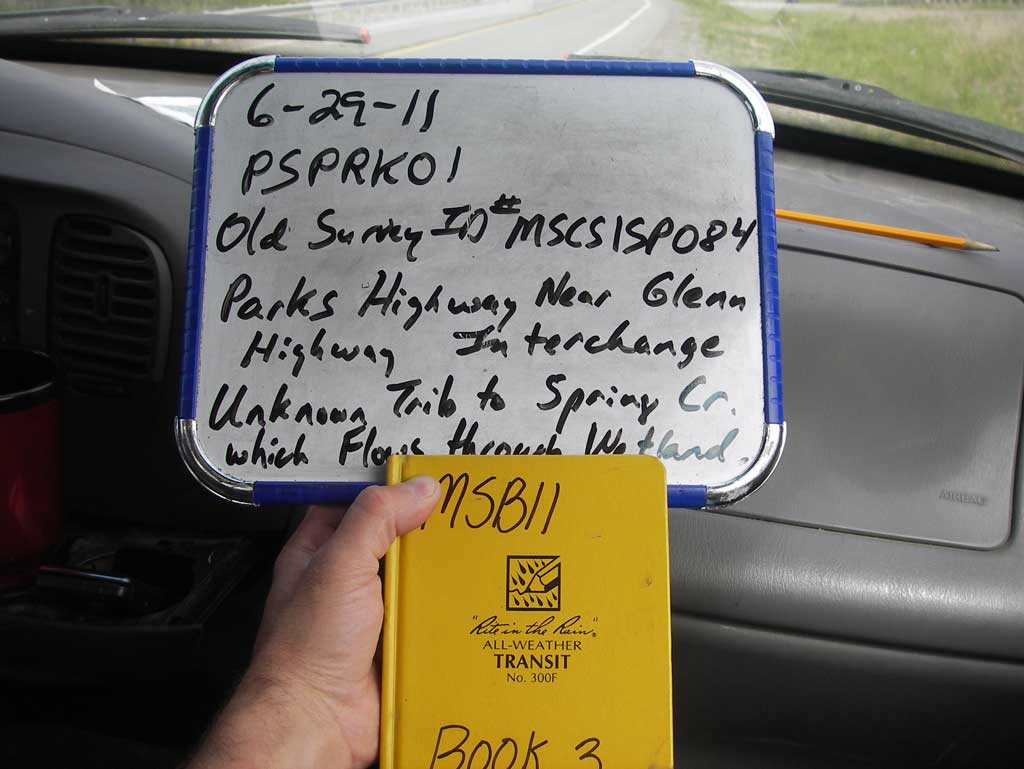 6-29-11
PSPRK01
Old Survey ID# MSCS1SP084
Parks Highway Near Glenn
Highway Interchange
Unknown Trib to Spring Cr.
which Flows through Wetland.
MSB11
"Rite in the Rain"
ALL-WEATHER
TRANSIT
No. 300F
BOOK 3
AIRBAG